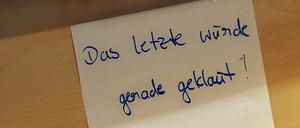 Das letzte würde
gerade geklaut!